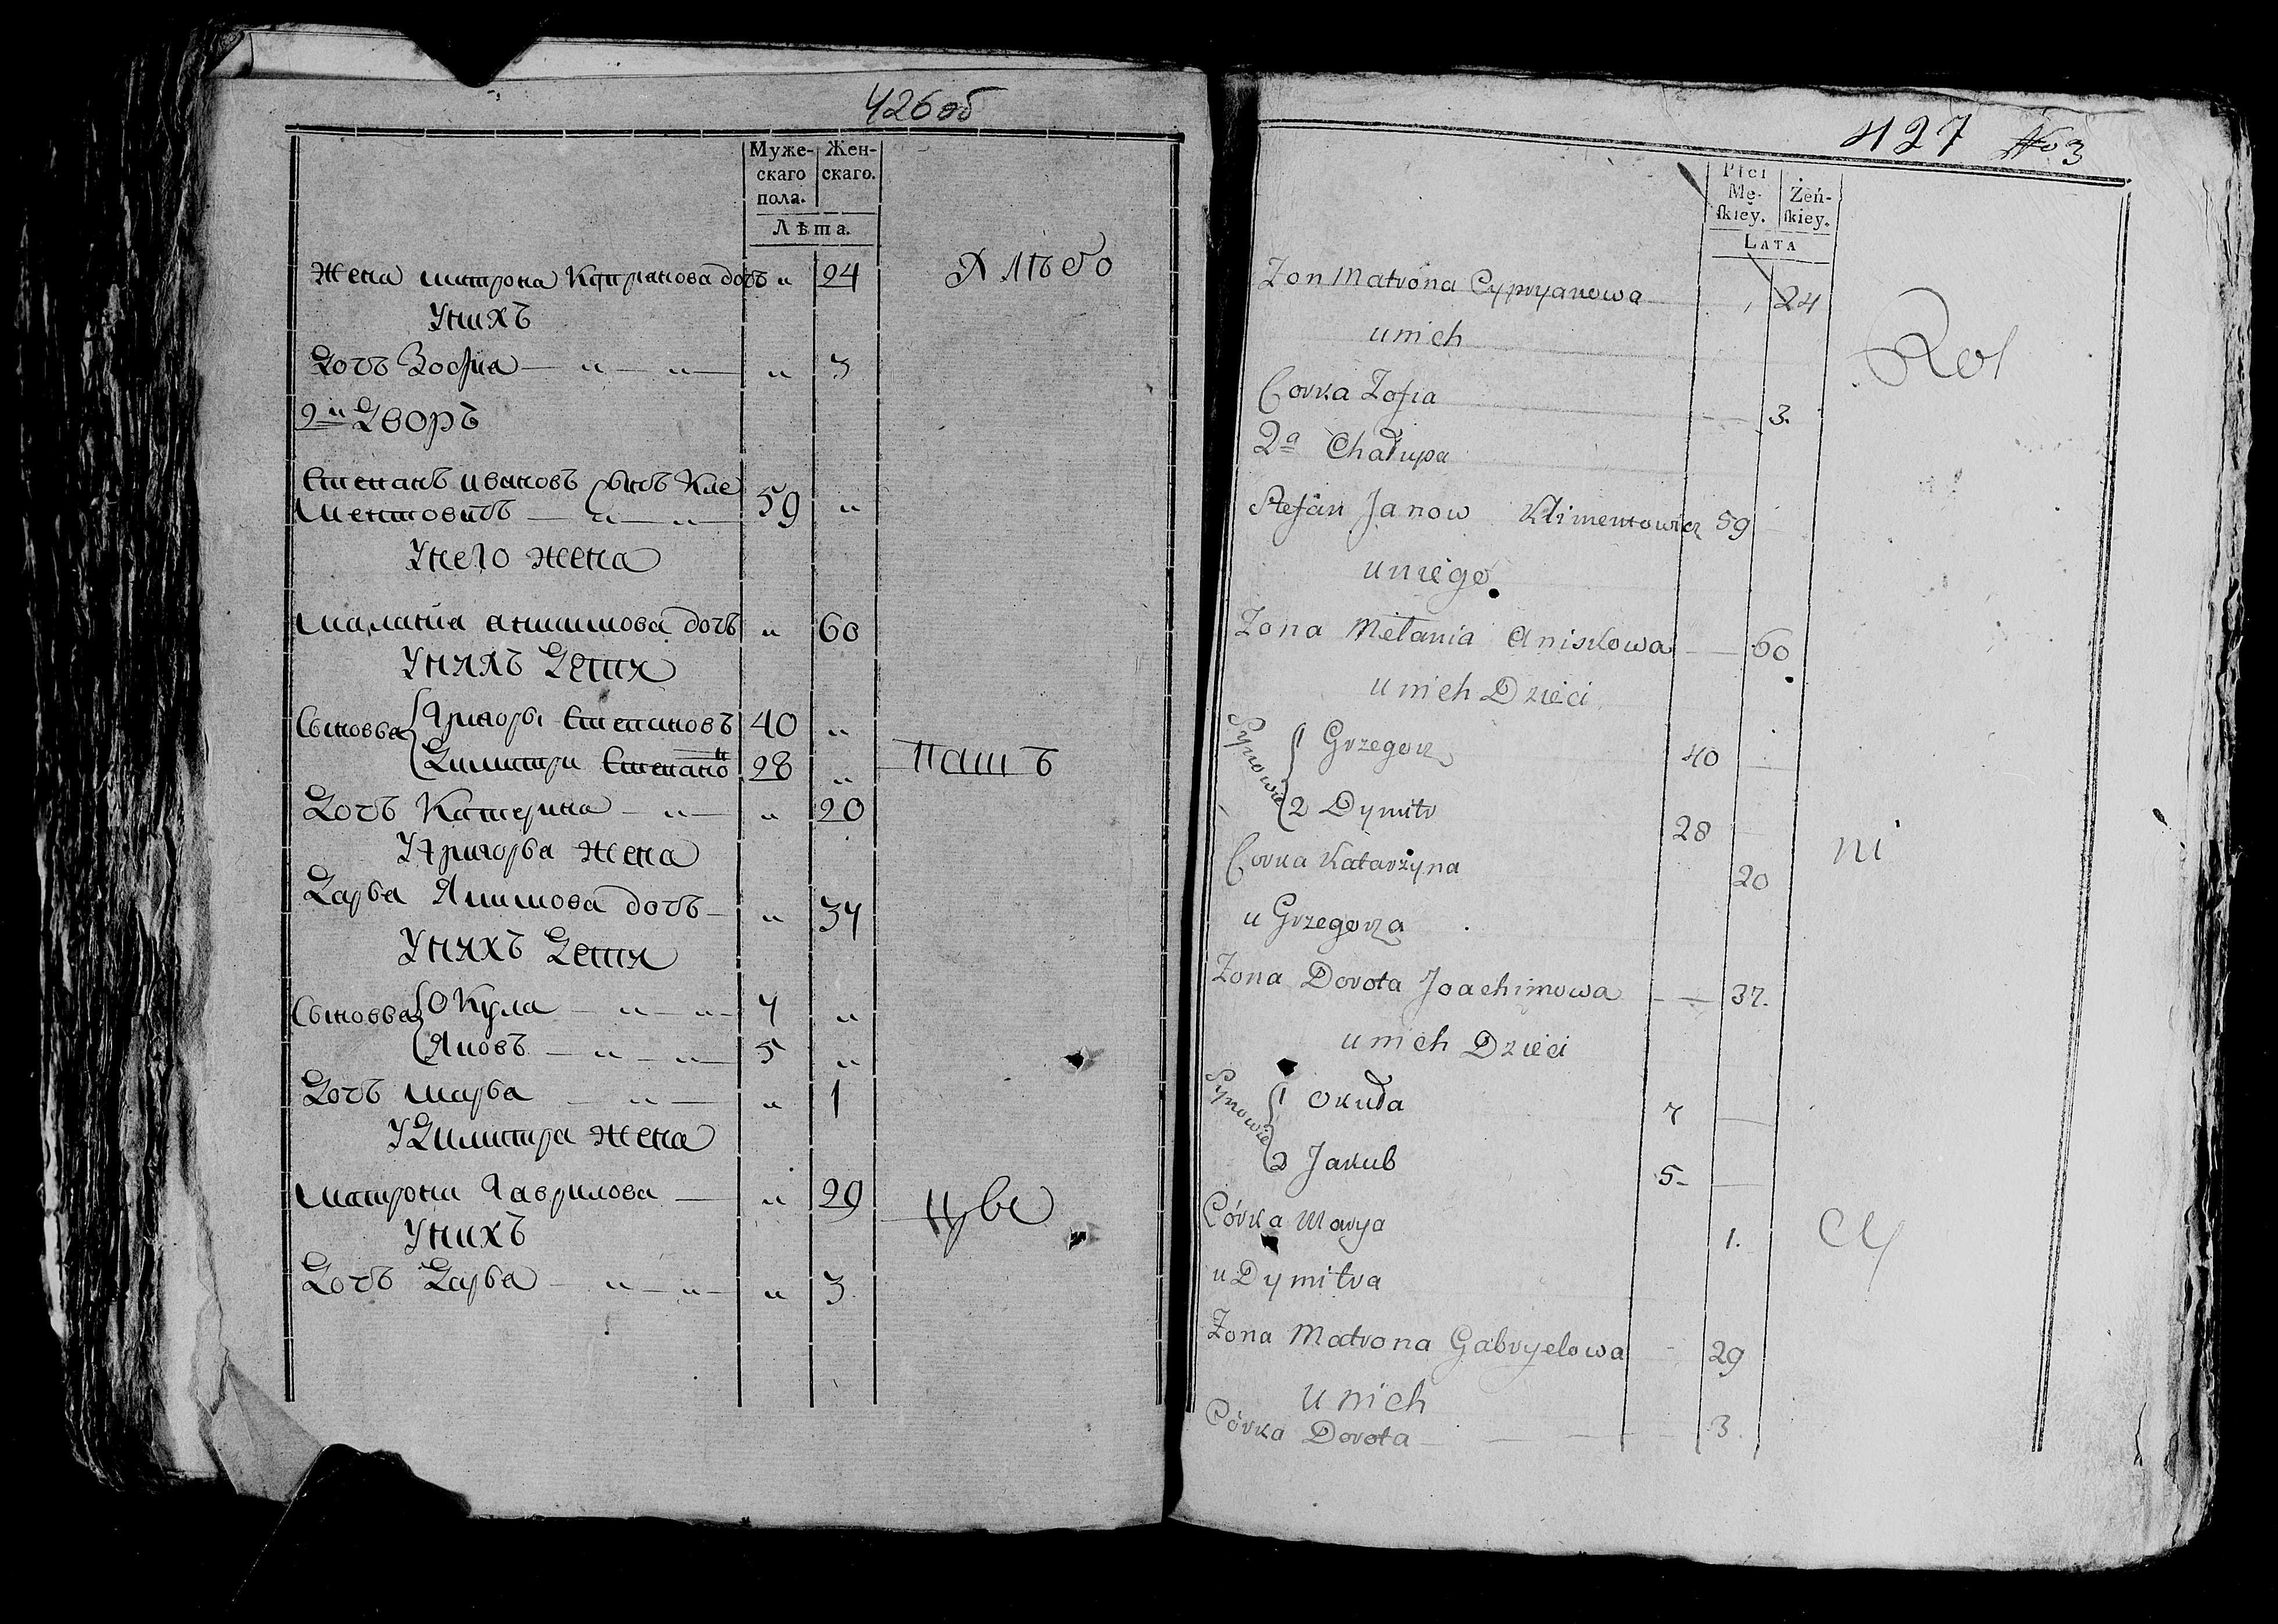 426 об
Муже- Жен-
скаго скаго.
пола.
Лѣта.
Жена матрона Киприанова дочь " 24
Хлѣбо
У нихъ
Дочь Зофиа — " — " — " 3
2й Дворъ
Степанъ ивановъ Сынъ Кле
ментовичъ — " — " — 59 "
У него жена
маланиа анишкова дочь " 60
У нихъ Дети
Сыновья Григорьi Степановъ 40 "
Димитри Степано 28 "
пашъ
Дочь Катерина — " — " 20
У Григорьа жена
Дарьа Якимова дочь — " 37
У нихъ Дети
Сыновья Окула — " — " — 7 "
Яковъ — " — " — 5 "
Дочь марьа — " — " 1
У Димитра жена
матрона Гаврилова — " 29
цы
У нихъ
Дочь Дарьа — " — " — " 3
427 No 3
Płci
Mę- Żeń-
ſkiey. ſkiey.
Lata
Zon Matrona Cypryanowa 24
Rol
u nich
Corka Zofia 3.
2a Chałupa
Stefan Janow Klimentowicz 59
u niego
Zona Melania Aniskowa 60
u nich Dzieci
Synowie 1 Grzegorz 40
2 Dymitr 28
ni
Corka Katarzyna 20
u Grzegorza
Zona Dorota Joachimowa 37.
u nich Dzieci
Synowie 1 Okuła 7
2 Jakub 5
Córka Marya 1.
cy
u Dymitra
Zona Matrona Gabryelowa 29
u nich
Córka Dorota 3.